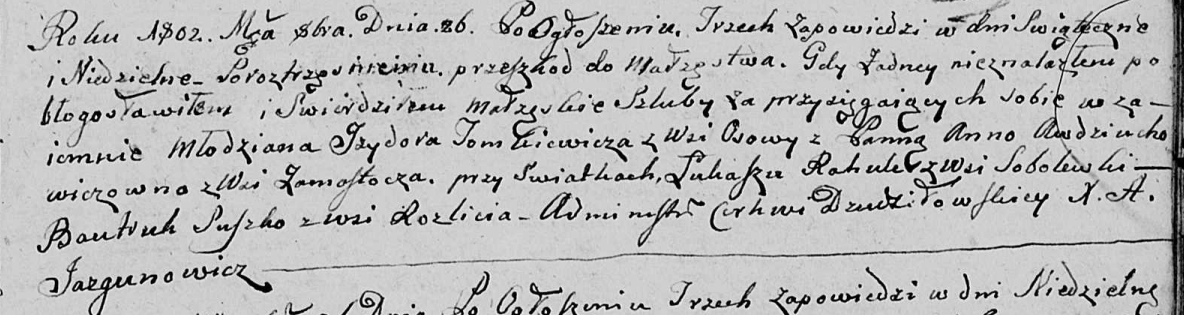 Roku 1802. Mca 8bra. Dnia. 26. Po Ogłoszeniu. Trzech Zapowiedzi w dni Swiąteczne
i Niedzielne_ Poroztrzęsnieniu. przeszkod do Małzęstwa. Gdy Zadney nieznalazłem po
błogosławiłem i Swierdziłem małzęskie Szluby Za przysięgaiących sobie w za_
iemnie Młodziana Jzydora Tomkiewicza z Wsi Osowy z Panną Anno Awdziucho
wiczowno z Wsi Zamostocza. przy Swiatkach, Łukaszu Rahule z Wsi Sobolewki_
Bautruk Suszko z wsi Rozlicia_ Administr Cerkwi Dzudziłowskiey X. A.
Jazgunowicz
Dnia Po Ogłoszeniu Trzech Zapowiedzi w dni Niedzielnę